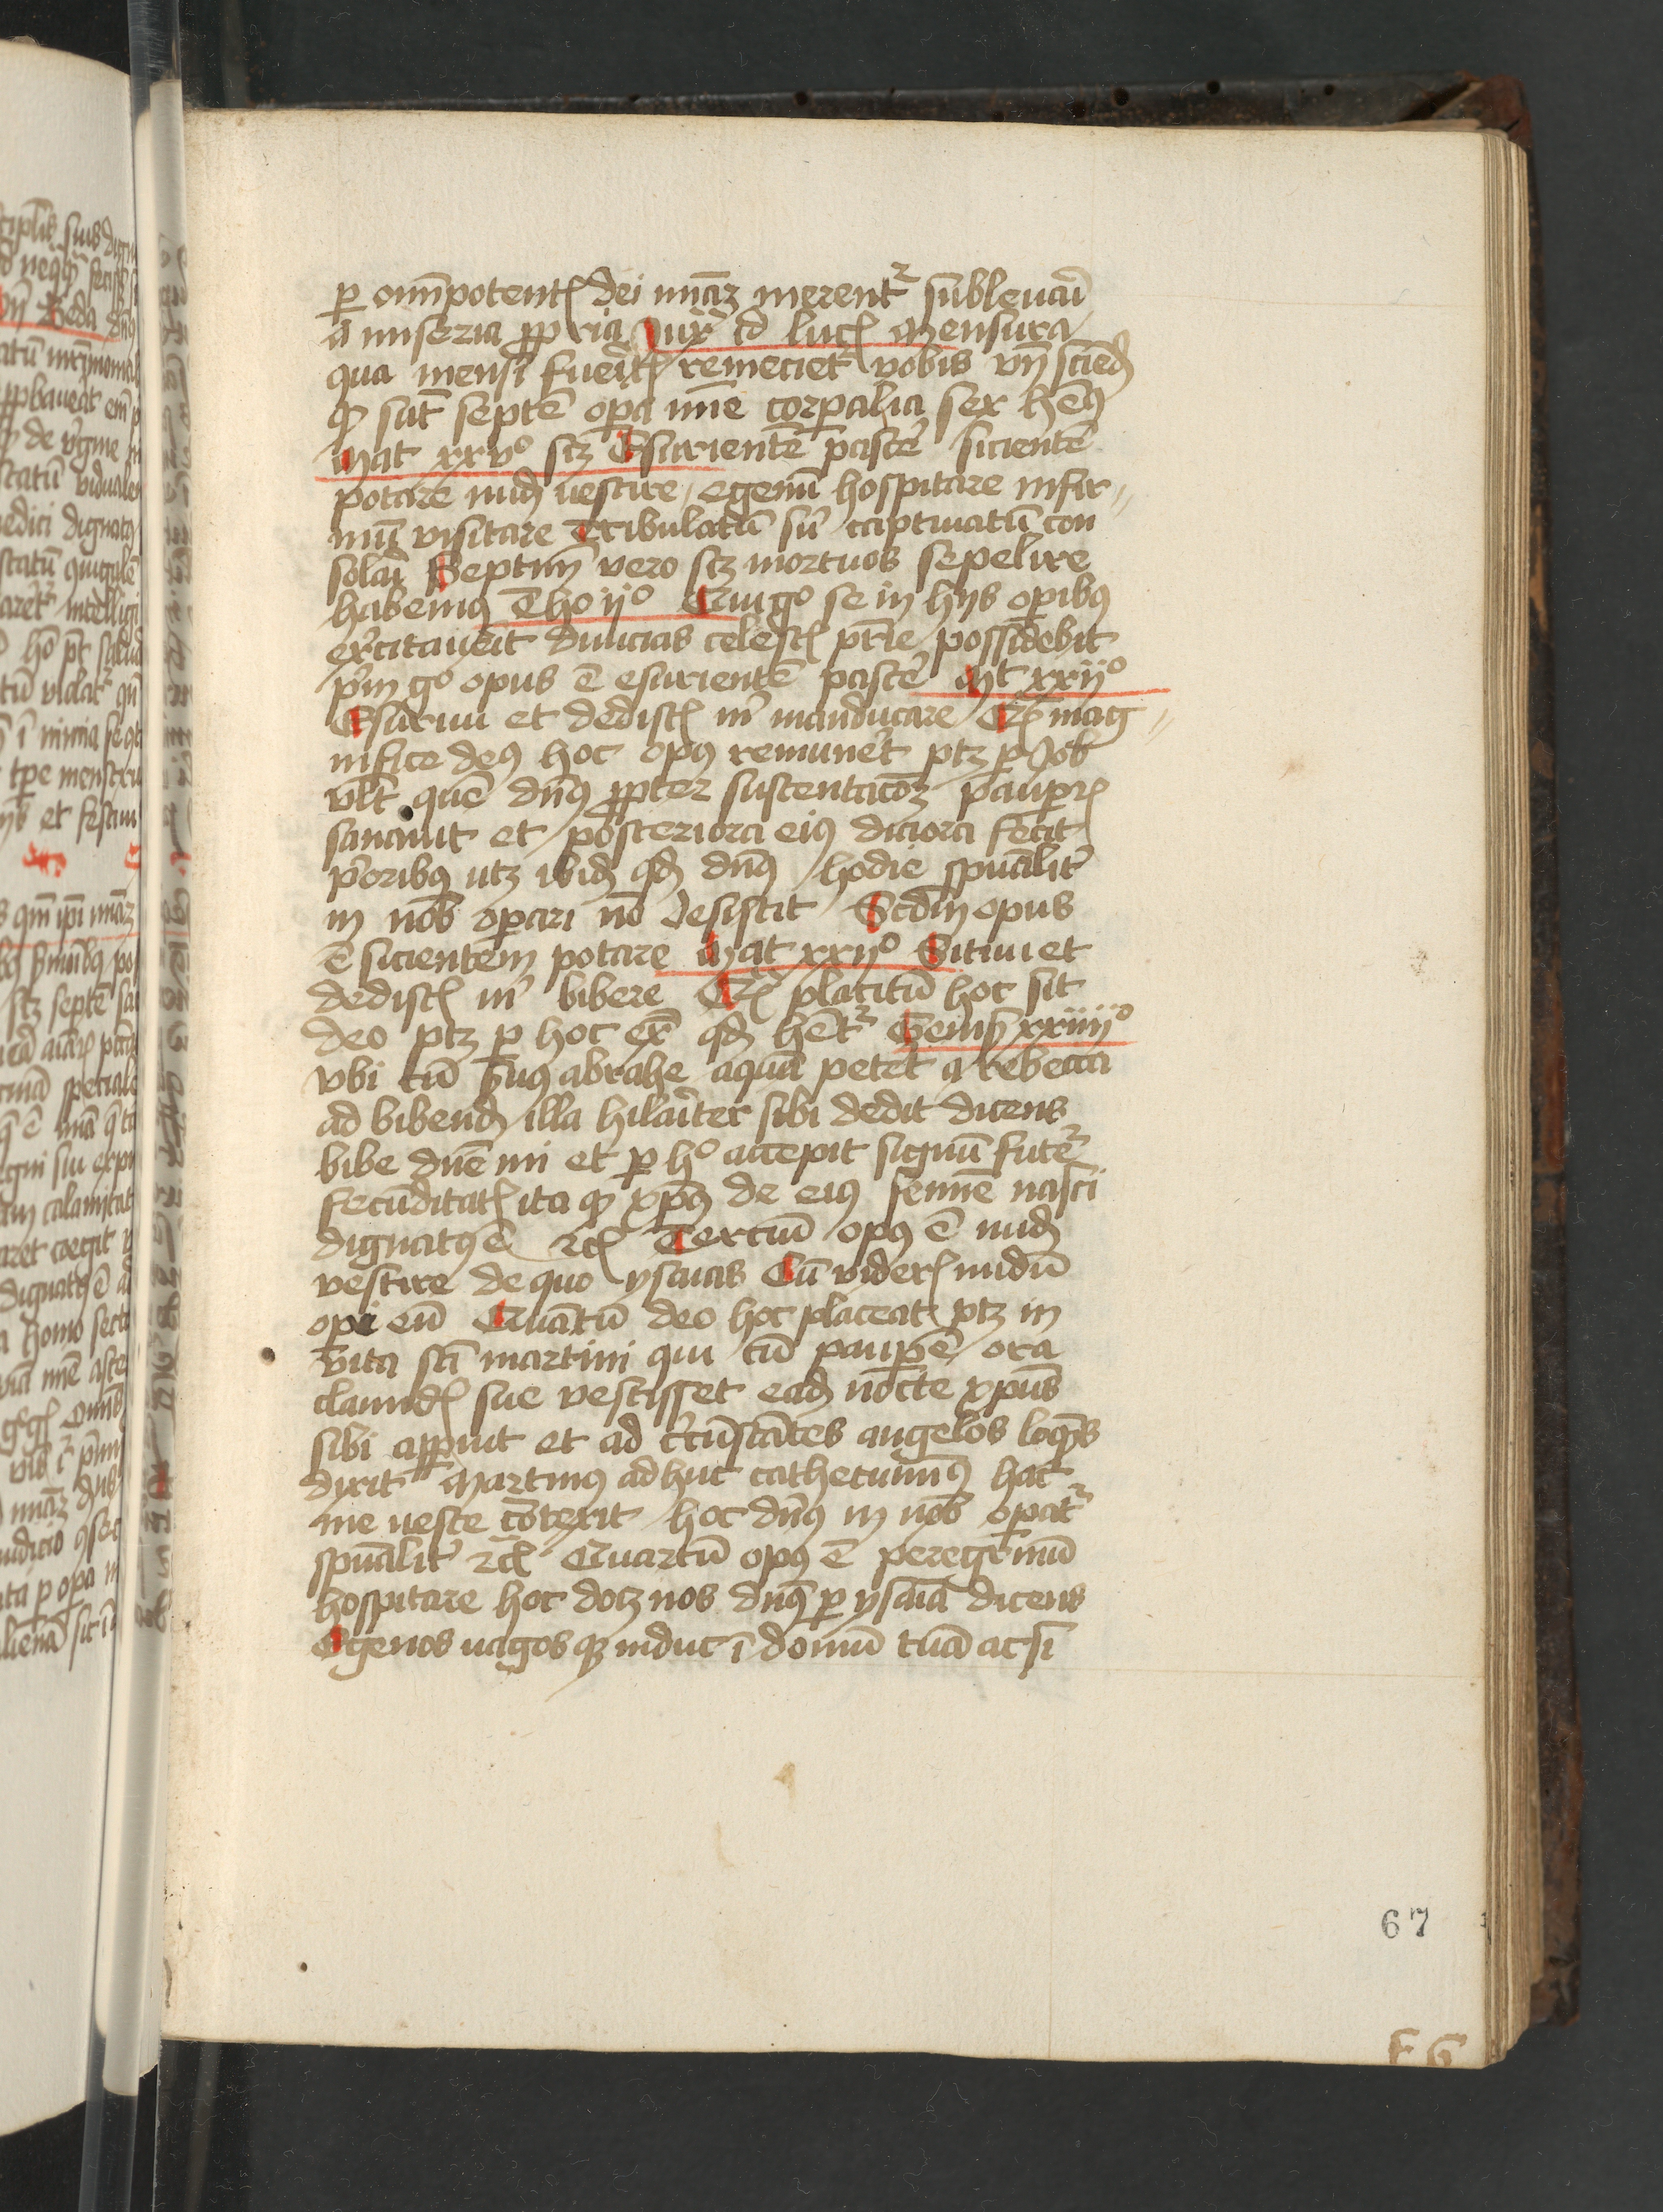 ꝑ om̄potentꝭ dei mīaꝫ merent᷑ subleuari
a miseria ꝓpria Iux̄ id lucꝭ Mensura
qua mensi fueritꝭ remeciet᷑ vobis vn̄ sciend
ꝙ sūt septē oꝑa mīe corꝑalia sex hēꝰ
Mat xxvº scꝫ Esurientē pascē sicientē
potare nudū vestire egenū hospitare infir
mū visitare Tribulatū siue captiuatū con
solari Septimū vero scꝫ mortuos sepelire
habemꝰ Tho ijº Qui gº se in hijs oꝑibꝰ
exercitauerit diuicias celestꝭ pr̄ie possidebit
pͥm gº opus ē esurientē pascē Mt xxijº
Esuriui et dedistꝭ mͥ manducare Qꝫ mag
nifice deꝰ hoc opꝰ remunet ptꝫ ꝑ Job
vlt quē dn̄ꝰ ꝓpter sustentacōꝫ pauꝑꝝ
sanauit et posteriora eiꝰ diciora fecit
pͥoribꝰ utꝫ ibidē qd dn̄ꝰ hodie spūalitͥ
in nob oꝑari nō desistit Scd̄m opus
ē sicientem potare Mat xxijº Sitiui et
dedistꝭ mͥ bibere Qꝫ placitū hoc sit
deo ptꝫ ꝑ hoc ex̄ qd hēt᷑ Genesꝭ xxiiijº
vbi cū seruꝰ abrahe aquā petēt a rebecca
ad bibendū illa hilaritͥer sibi dedit dicens
bibe dn̄e mi et ꝑ hº accepit signū future
fecūditatꝭ ita ꝙ xp̄ꝰ de eiꝰ semīe nasci
dignatꝰ ē ⁊cꝭ Terciū opꝰ ē nudū
vestire de quo ysaias Cū viderꝭ nudū
opi eū Quātū deo hoc placeat ptꝫ in
vita scī martini qui cū pauꝑē ora
clamidꝭ sue vestisset eadē nocte xp̄us
sibi apparuit et ad cͥcūstātes angelos loqͥns
dixit Martinꝰ adhuc cathecuminꝰ hac
me ueste cōtexit hoc dn̄ꝰ in nob oꝑat᷑
spūalitͥ ⁊cꝭ Quartū opꝰ ē peregͥnū
hospitare hoc docꝫ nos dn̄ꝰ ꝑ ysaiā dicens
Egenos uagosqꝫ induc ī domū tuā ac si
67